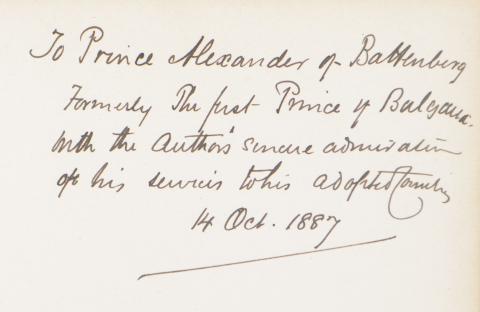 To Prince Alexander of Battenberg
Formerly The first Prince of Bulgaria.
With the Author's sincere admiration
of his services to his adopted Country
14 Oct. 1887